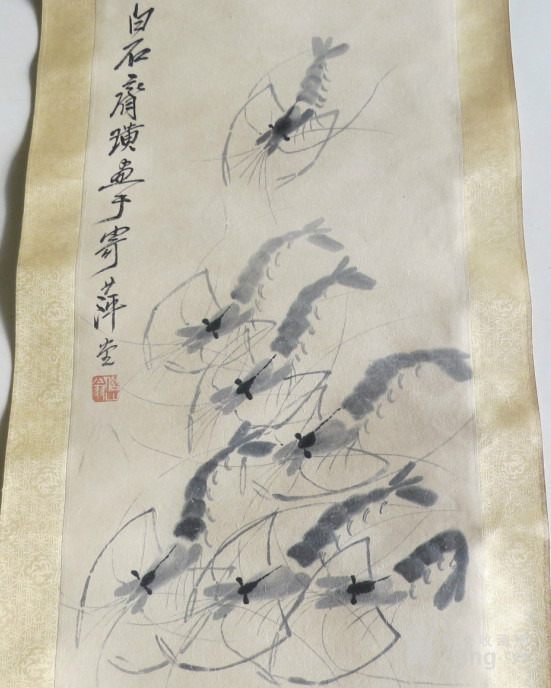 白石齊璜画于寄萍堂